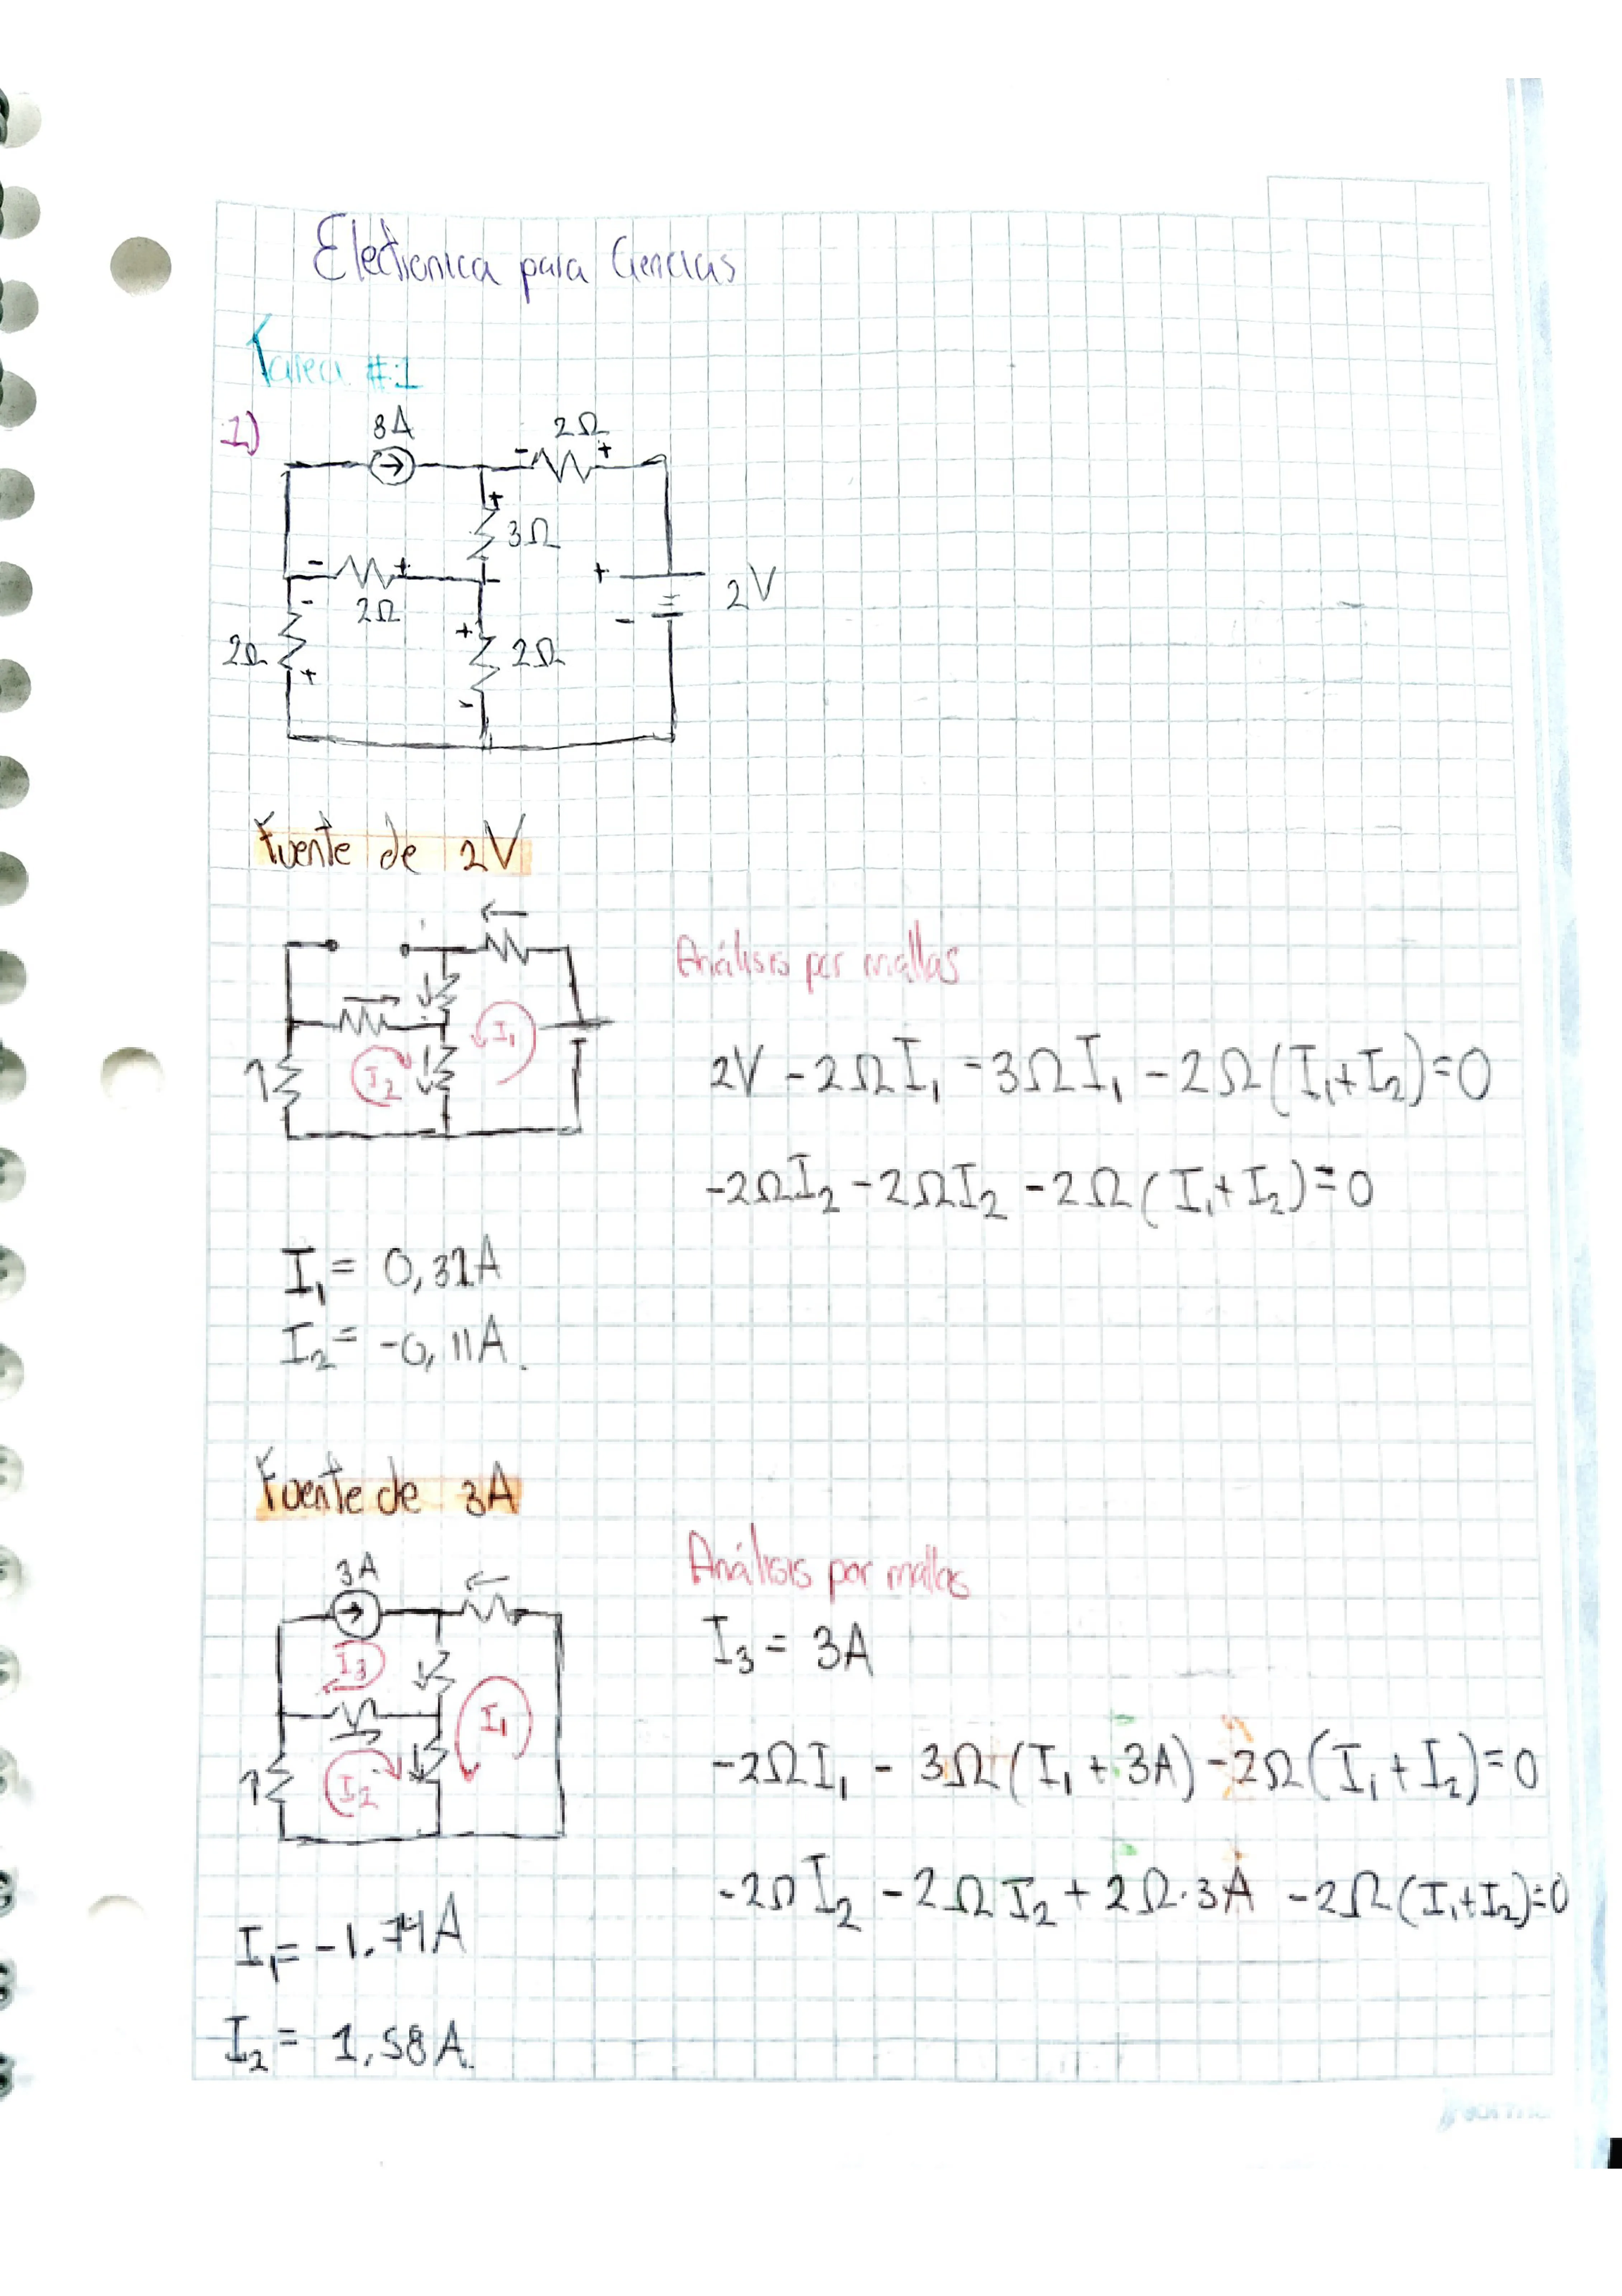 Electronica para Ciencias
Tarea #1
1)
3A
2Ω
- +
+
3Ω
- + -
2Ω
-
2Ω
+
+
2Ω
-
+
-
2V
Fuente de 2V
Análisis por mallas
I₁
I₂
2V - 2ΩI₁ - 3ΩI₁ - 2Ω(I₁+I₂)=0
-2ΩI₂ - 2ΩI₂ - 2Ω(I₁+I₂)=0
I₁ = 0,32A
I₂ = -0,11A.
Fuente de 3A
Análisis por mallas
3A
I₃
I₁
I₂
I₃ = 3A
-2ΩI₁ - 3Ω(I₁ + 3A) - 2Ω(I₁ + I₂)=0
-2ΩI₂ - 2ΩI₂ + 2Ω·3A - 2Ω(I₁+I₂)=0
I₁ = -1.74A
I₂ = 1,58A.